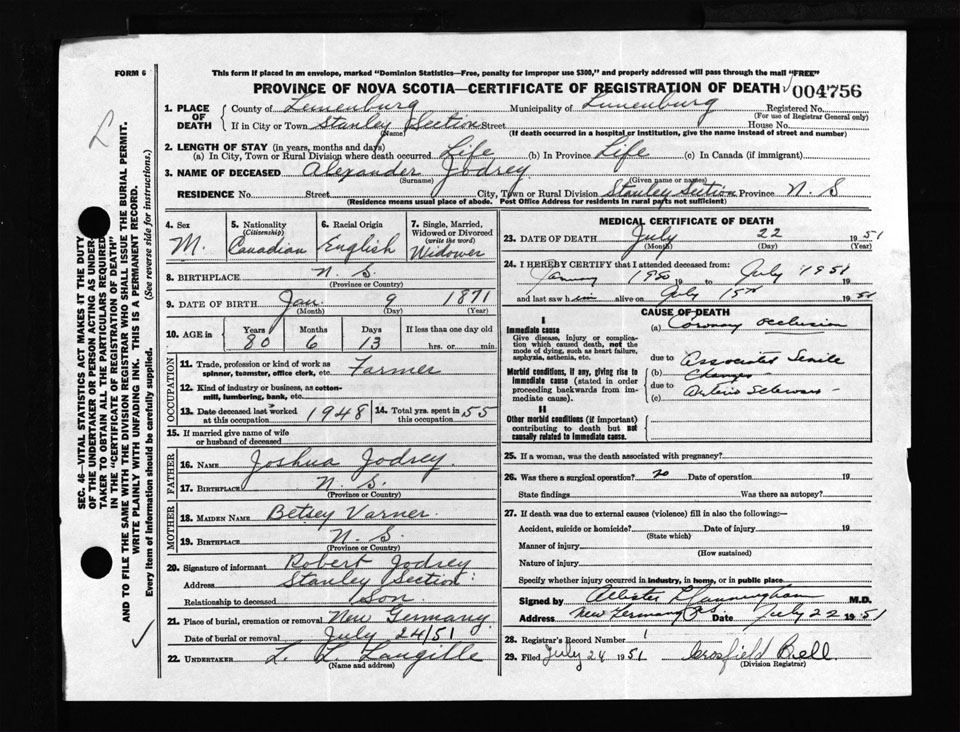 FORM 6
This form if placed in an envelope, marked "Dominion Statistics—Free, penalty for improper use $300," and properly addressed will pass through the mail "FREE"
PROVINCE OF NOVA SCOTIA—CERTIFICATE OF REGISTRATION OF DEATH
004756
1. PLACE OF DEATH
County of Lunenburg Municipality of Lunenburg Registered No.
(For use of Registrar General only)
If in City or Town Stanley Section Street House No.
(Name) (If death occurred in a hospital or institution, give the name instead of street and number)
2. LENGTH OF STAY (in years, months and days)
(a) In City, Town or Rural Division where death occurred Life (b) In Province Life (c) In Canada (if immigrant)
3. NAME OF DECEASED Alexander Jodrey
(Surname) (Given name or names)
RESIDENCE No. Street City, Town or Rural Division Stanley Section Province N. S
(Residence means usual place of abode. Post Office Address for residents in rural parts not sufficient)
4. Sex
M.
5. Nationality
(Citizenship)
Canadian
6. Racial Origin
English
7. Single, Married, Widowed or Divorced
(write the word)
Widower
8. BIRTHPLACE N. S.
(Province or Country)
9. DATE OF BIRTH Jan. 9 1871
(Month) (Day) (Year)
10. AGE in
Years Months Days If less than one day old
80 6 13 hrs. or min.
OCCUPATION
11. Trade, profession or kind of work as spinner, teamster, office clerk, etc. Farmer
12. Kind of industry or business, as cotton-mill, lumbering, bank, etc.
13. Date deceased last worked at this occupation 1948
14. Total yrs. spent in this occupation 55
15. If married give name of wife or husband of deceased
FATHER
16. NAME Joshua Jodrey.
17. BIRTHPLACE N. S.
(Province or Country)
MOTHER
18. MAIDEN NAME Betsey Varner.
19. BIRTHPLACE N. S.
(Province or Country)
20. Signature of informant Robert Jodrey
Address Stanley Section
Relationship to deceased Son.
21. Place of burial, cremation or removal New Germany.
Date of burial or removal July 24/51
22. UNDERTAKER L. L. Langille
(Name and address)
MEDICAL CERTIFICATE OF DEATH
23. DATE OF DEATH July 22 1951
(Month) (Day) (Year)
24. I HEREBY CERTIFY that I attended deceased from:
January 1950 19 to July 1951
and last saw him alive on July 15th 1951
CAUSE OF DEATH
I
Immediate cause
Give disease, injury or complication which caused death, not the mode of dying, such as heart failure, asphyxia, asthenia, etc.
(a) Coronary occlusion
due to Associated Senile
Morbid conditions, if any, giving rise to immediate cause (stated in order proceeding backwards from immediate cause).
(b) Changes
due to
(c) Arterio Sclerosis
II
Other morbid conditions (if important) contributing to death but not causally related to immediate cause.
25. If a woman, was the death associated with pregnancy?
26. Was there a surgical operation? no Date of operation 19
State findings Was there an autopsy?
27. If death was due to external causes (violence) fill in also the following:—
Accident, suicide or homicide? Date of injury 19
(State which)
Manner of injury
(How sustained)
Nature of injury
Specify whether injury occurred in industry, in home, or in public place
Signed by Allister Cunningham M.D.
Address New Germany N.S. Date July 22 1951
28. Registrar's Record Number 1
29. Filed July 24 1951 Crosfield Bell
(Division Registrar)
SEC. 46—VITAL STATISTICS ACT MAKES IT THE DUTY
OF THE UNDERTAKER OR PERSON ACTING AS UNDER-
TAKER TO OBTAIN ALL THE PARTICULARS REQUIRED
IN THE "CERTIFICATE OF REGISTRATION OF DEATH"
AND TO FILE THE SAME WITH THE DIVISION REGISTRAR WHO SHALL ISSUE THE BURIAL PERMIT.
WRITE PLAINLY WITH UNFADING INK. THIS IS A PERMANENT RECORD.
Every item of information should be carefully supplied. (See reverse side for instructions.)